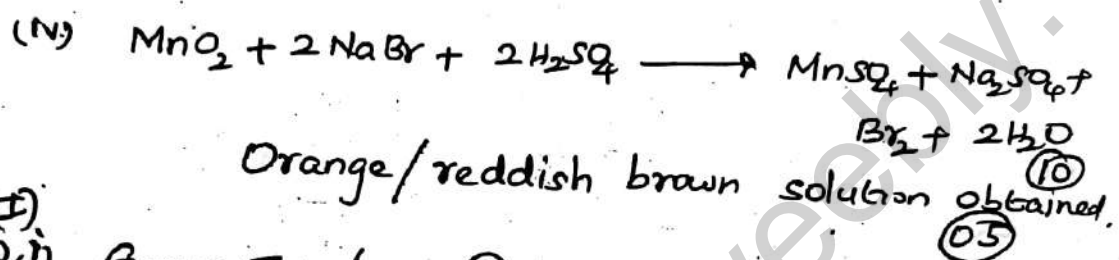 (iv) MnO₂ + 2 NaBr + 2 H₂SO₄ ⟶ MnSO₄ + Na₂SO₄ +
Br₂ + 2H₂O
(10)
Orange/reddish brown solution obtained.
(05)
eebly.